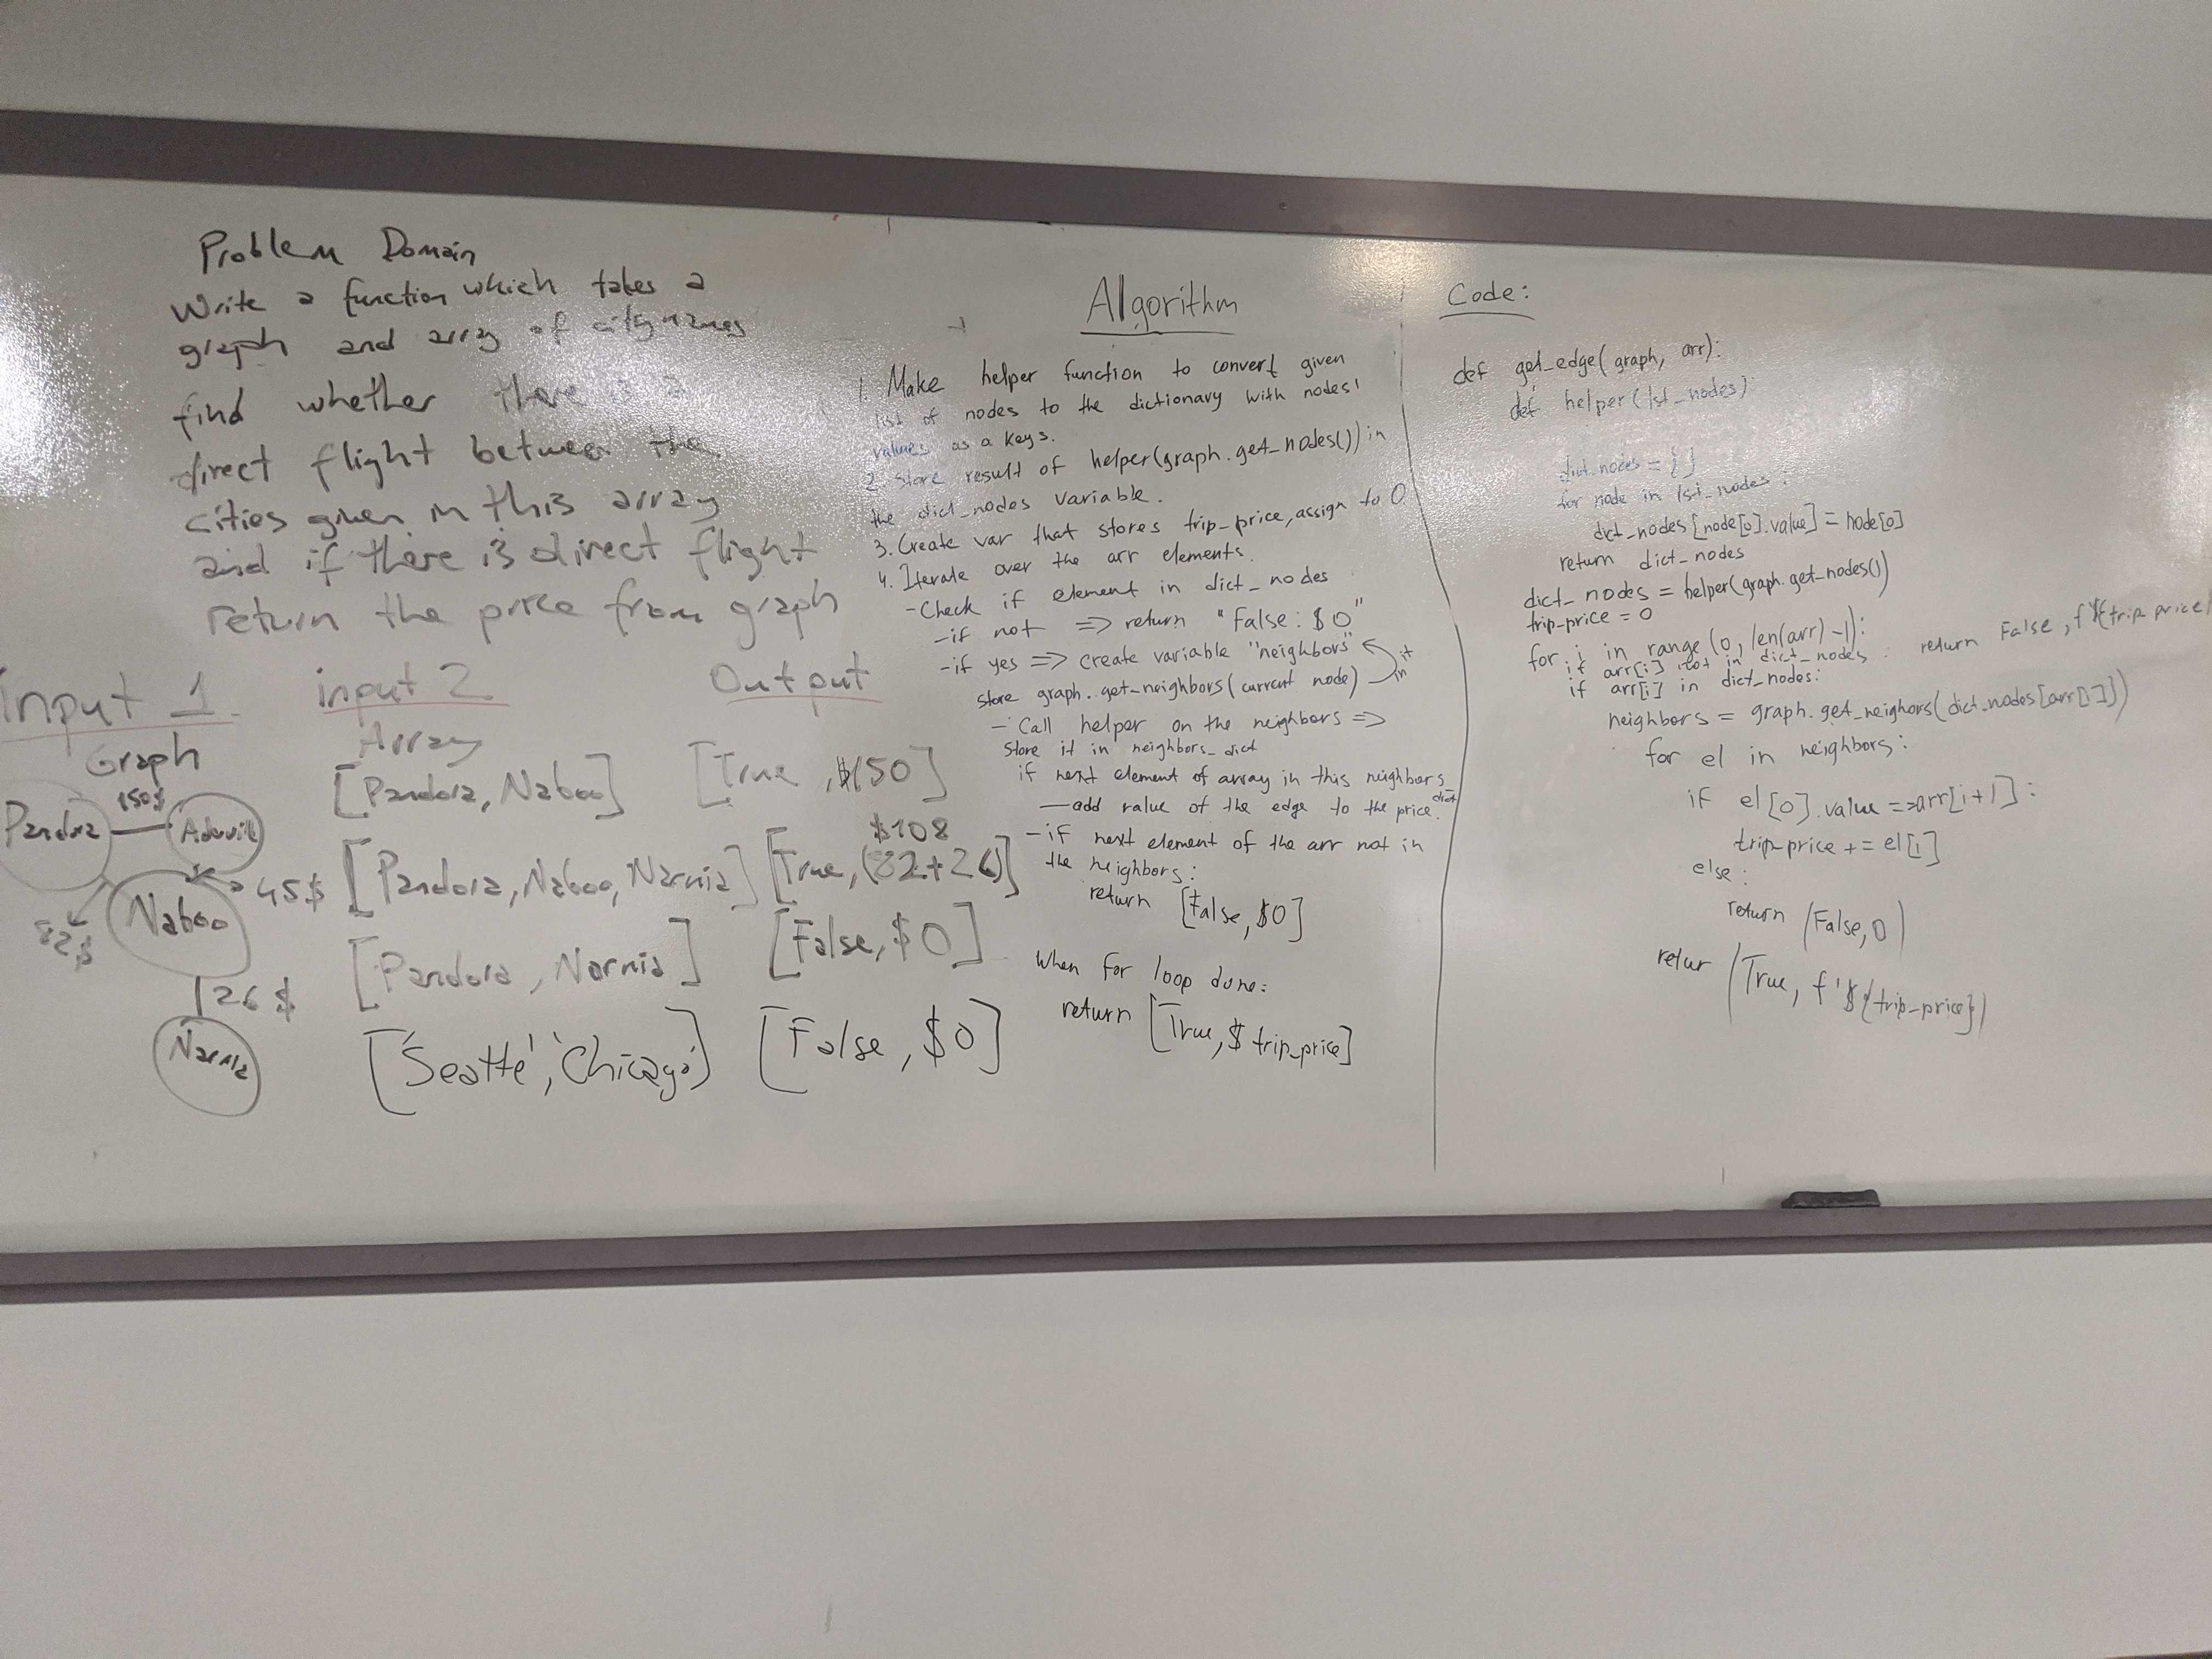 Problem Domain
Write a function which takes a
graph and array of city names
find whether there is a
direct flight between the
cities given in this array
and if there is direct flight
return the price from graph
Input 1
Graph
Pandora
150$
Naboo
82$
45$
26$
Narnia
input 2
Array
[Pandora, Naboo]
[Pandora, Naboo, Narnia]
[Pandora, Narnia]
['Seattle', 'Chicago']
Output
[True, $150]
$108
[True, (82+26)]
[False, $0]
[False, $0]
Algorithm
1. Make helper function to convert given
list of nodes to the dictionary with nodes'
values as a keys.
2. Store result of helper(graph.get_nodes()) in
the dict_nodes variable.
3. Create var that stores trip_price, assign to 0
4. Iterate over the arr elements.
- Check if element in dict_nodes
- if not => return "False: $0"
- if yes => create variable "neighbors"
store graph.get_neighbors(current node) it in
- Call helper on the neighbors =>
store it in neighbors_dict
if next element of array in this neighbors_dict
— add value of the edge to the price.
- if next element of the arr not in
the neighbors:
return [False, $0]
When for loop done:
return [True, $ trip_price]
Code:
def get_edge(graph, arr):
def helper(lst_nodes)
dict_nodes = {}
for node in lst_nodes:
dict_nodes[node[0].value] = node[0]
return dict_nodes
dict_nodes = helper(graph.get_nodes())
trip_price = 0
for i in range(0, len(arr)-1):
if arr[i] not in dict_nodes: return False, f'${trip_price}
if arr[i] in dict_nodes:
neighbors = graph.get_neighors(dict_nodes[arr[i]])
for el in neighbors:
if el[0].value == arr[i+1]:
trip_price += el[1]
else:
return (False, 0)
retur (True, f'${trip_price})